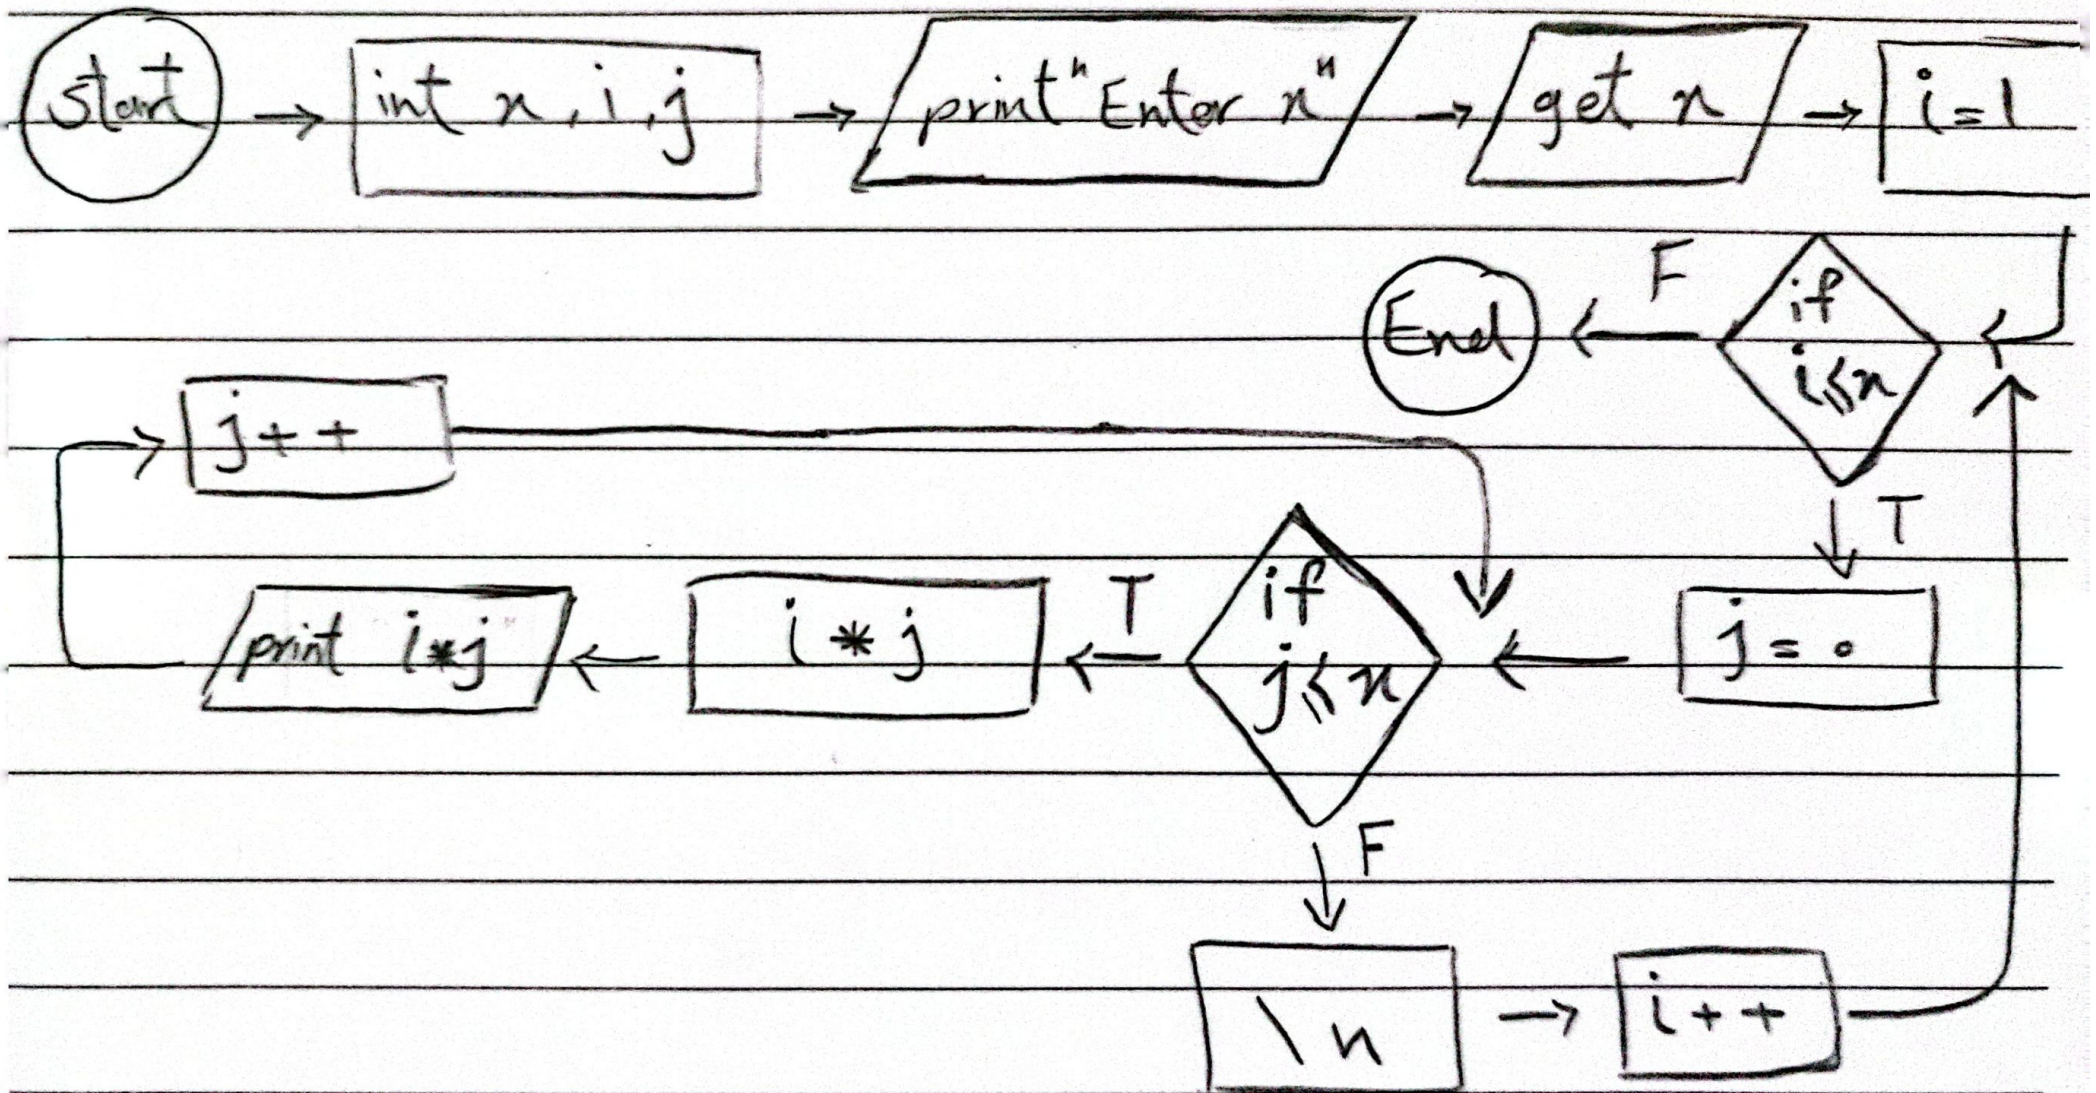 start
int n, i, j
print "Enter n"
get n
i=1
if
i≤n
F
End
T
j = 0
if
j≤n
T
i * j
print i*j
j++
F
\n
i++